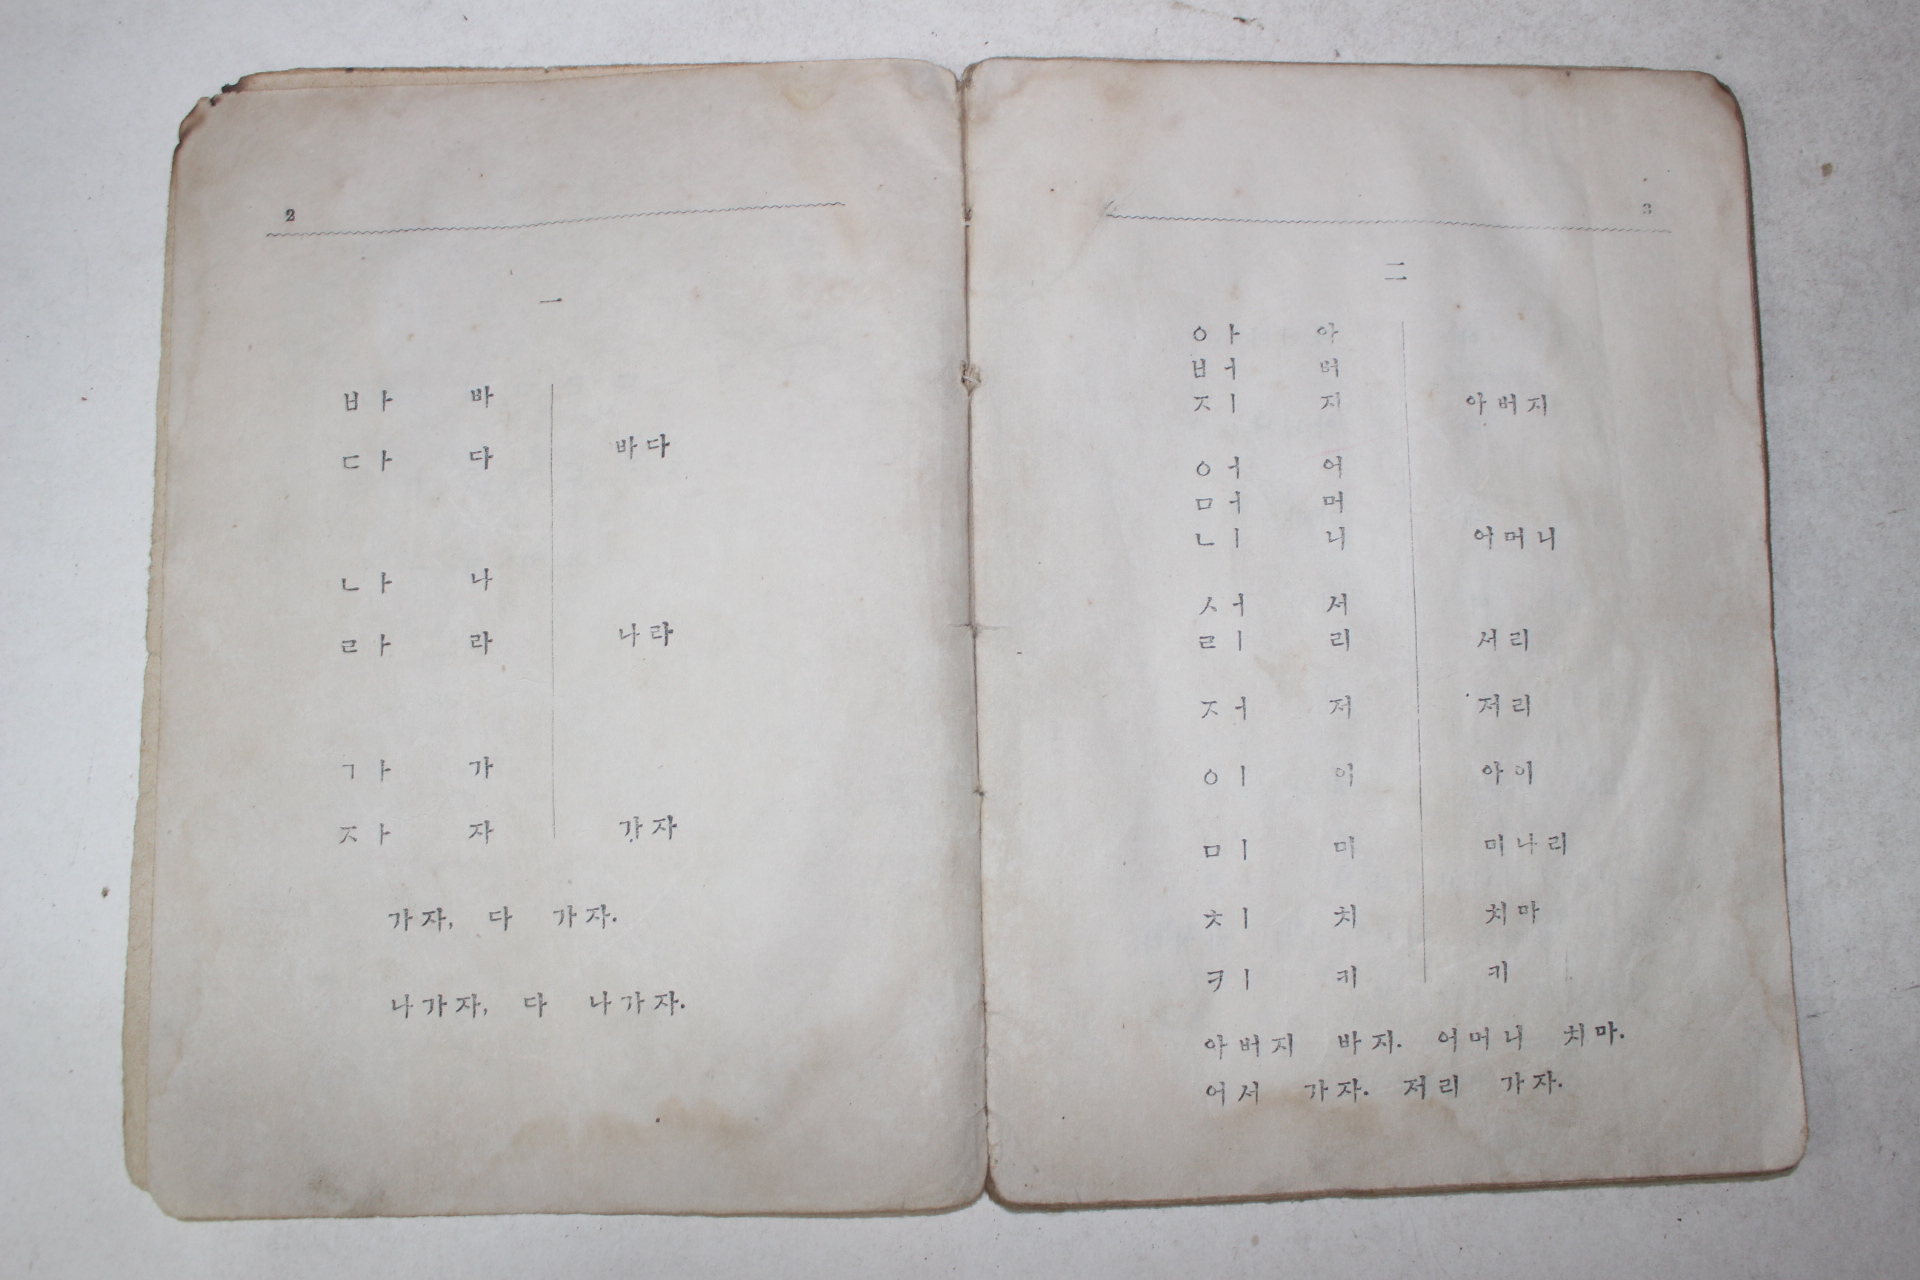 2
一
ㅂㅏ 바
ㄷㅏ 다
바다
ㄴㅏ 나
ㄹㅏ 라
나라
ㄱㅏ 가
ㅈㅏ 자
가자
가자, 다 가자.
나가자, 다 나가자.
3
二
ㅇㅏ 아
ㅂㅓ 버
ㅈㅣ 지 아버지
ㅇㅓ 어
ㅁㅓ 머
ㄴㅣ 니 어머니
ㅅㅓ 서
ㄹㅣ 리 서리
ㅈㅓ 저 저리
ㅇㅣ 이 아이
ㅁㅣ 미 미나리
ㅊㅣ 치 치마
ㅋㅣ 키 키
아버지 바지. 어머니 치마.
어서 가자. 저리 가자.